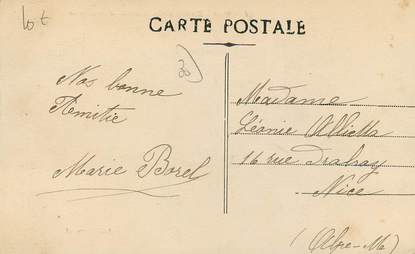 lot
CARTE POSTALE
30
Nos bonne
Amitie
Marie Borel
Madame
Léonie
16 rue
Nice
(Alpe-M)